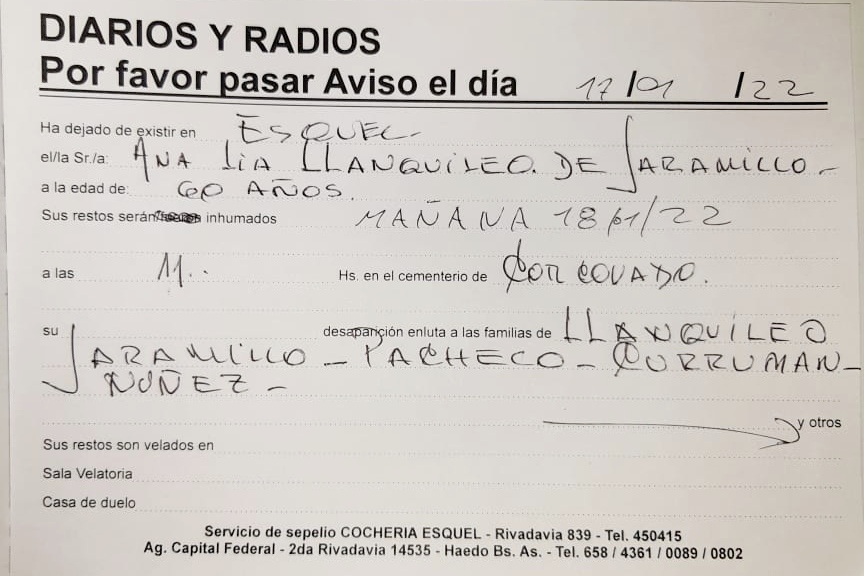 DIARIOS Y RADIOS
Por favor pasar Aviso el día 17/01 /22
Ha dejado de existir en ESQUEL.
el/la Sr./a: ANA LIA LLANQUILEO. DE JARAMILLO-
a la edad de: 60 AÑOS.
Sus restos serán inhumados MAÑANA 18/01/22
a las 11.. Hs. en el cementerio de CORCOVADO.
su desaparición enluta a las familias de LLANQUILEO
JARAMILLO - PACHECO - CURRUMAN-
NUÑEZ -
y otros
Sus restos son velados en
Sala Velatoria
Casa de duelo
Servicio de sepelio COCHERIA ESQUEL - Rivadavia 839 - Tel. 450415
Ag. Capital Federal - 2da Rivadavia 14535 - Haedo Bs. As. - Tel. 658 / 4361 / 0089 / 0802